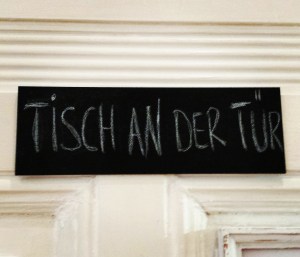 TISCH AN DER TÜR